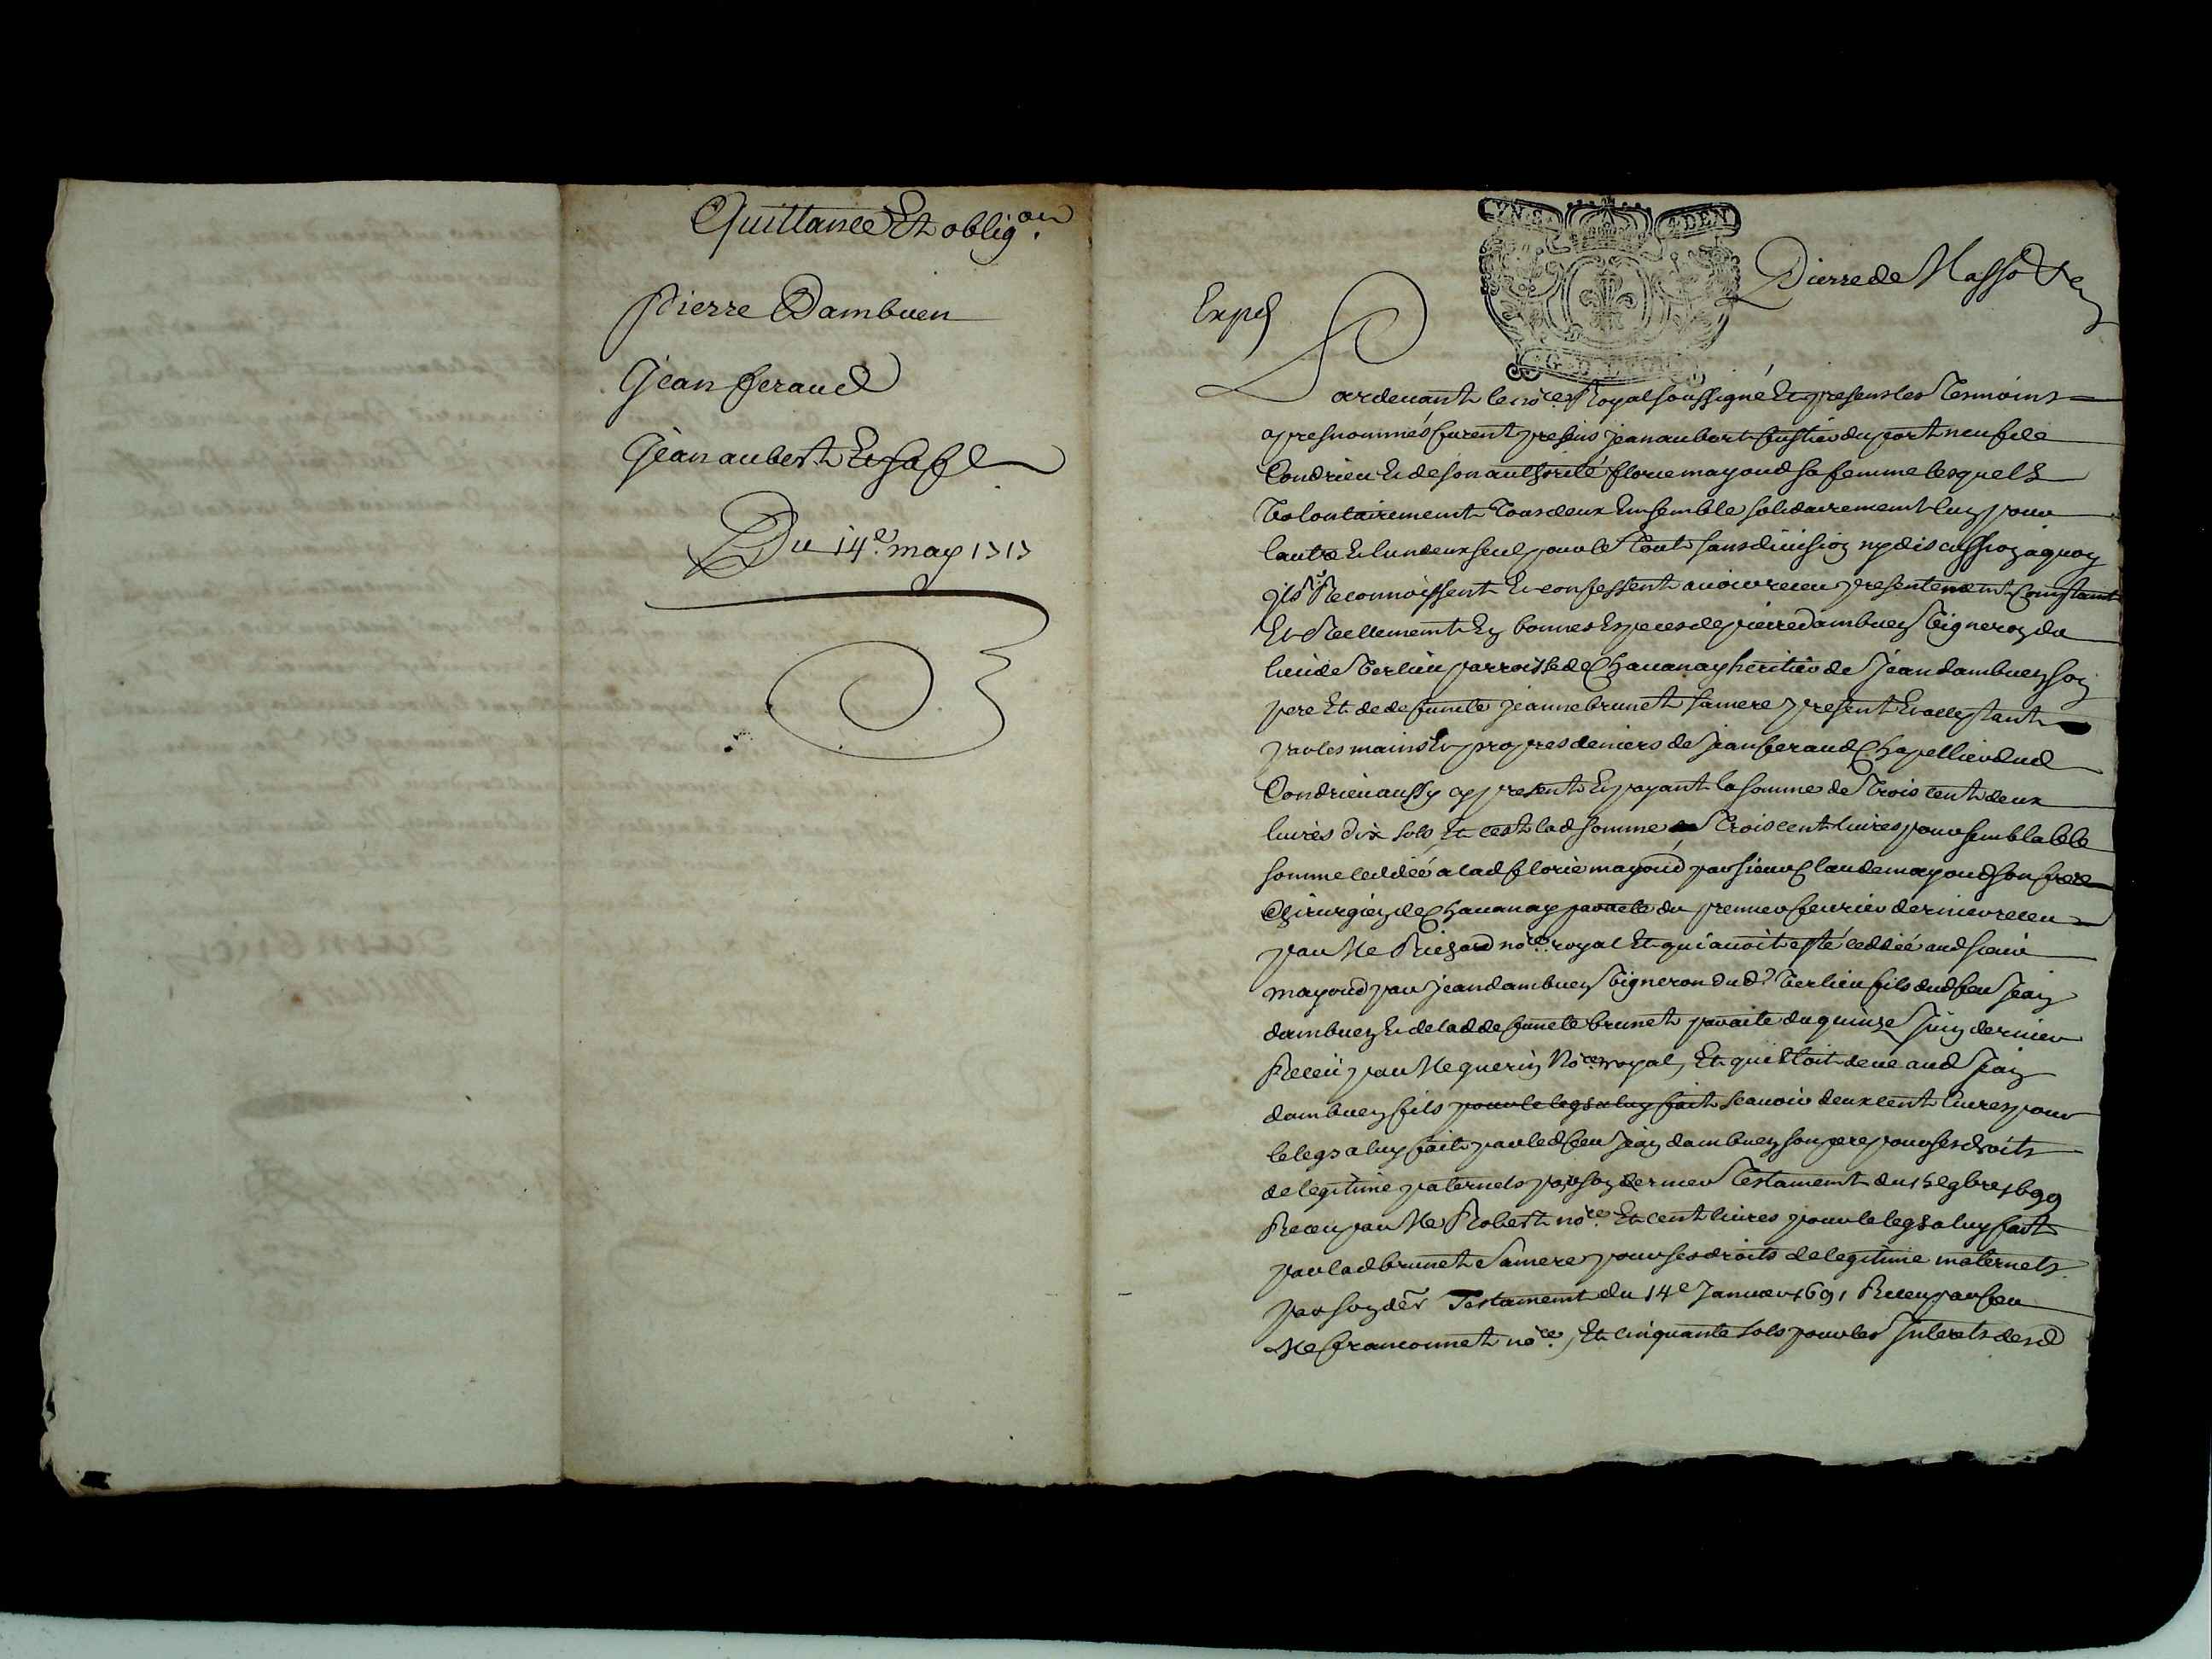 Quittance Et oblig.on
pierre Dambuen
Jean feraud
Jean aubert Et sa f.e
Du 14e. may 1717
G. D LYON
Expé
Pardevant le no.re Royal soussigné Et presens les Tesmoins
apres nommés furent presens jean aubert fustier du port neuf de
Condrieu Et de son authorité florie mayoud sa femme lesquels
Volontairement Tous deux Ensemble solidairement lug pour
lautre Et lun deux seul pour le Tout sans division ny discussion aquoy
ils Reconnoissent Et confessent avoir receu presentement Comptant
Et Reellement En bonnes Especes de pierre dambuen Vigneron du
lieu de Verlieu parroisse de Chavanay heritier de Jean dambuen son
pere Et de defunte jeanne brunet sa mere present Et acceptant
par les mains Et propres deniers de jean feraud Chapellier dud
Condrieu aussy cy present Et payant la somme de Trois cent deux
livres dix sols Et cest lad somme Trois cent livres pour semblable
somme ceddée a lad florie mayoud par sieur Claude mayoud son frere
Chirurgien de Chavanay par acte du premier fevrier dernier receu
par Me Richard no.re royal Et qui avoit esté ceddée aud sieur
mayoud par jean dambuen Vigneron dud. Verlieu fils dud feu Jean
dambuen Et de lad defuncte brunet par acte du quinze Juin dernier
Receu par Me guerin No.re royal, Et qui Etoit deue aud Jean
dambuen fils pour le legs a luy fait scavoir deux cent livres pour
le legs a luy fait par led feu Jean dambuen son pere pour ses droits
de legitime paternels par son dernier Testament du 15e 9bre 1699
Receu par Me Robert no.re Et cent livres pour le legs a luy fait
par lad brunet sa mere pour ses droits de legitime maternels
par son der Testament du 14e Janvier 1691 Receu par feu
Me franconnet no.re, Et cinquante sols pour les Interets desd